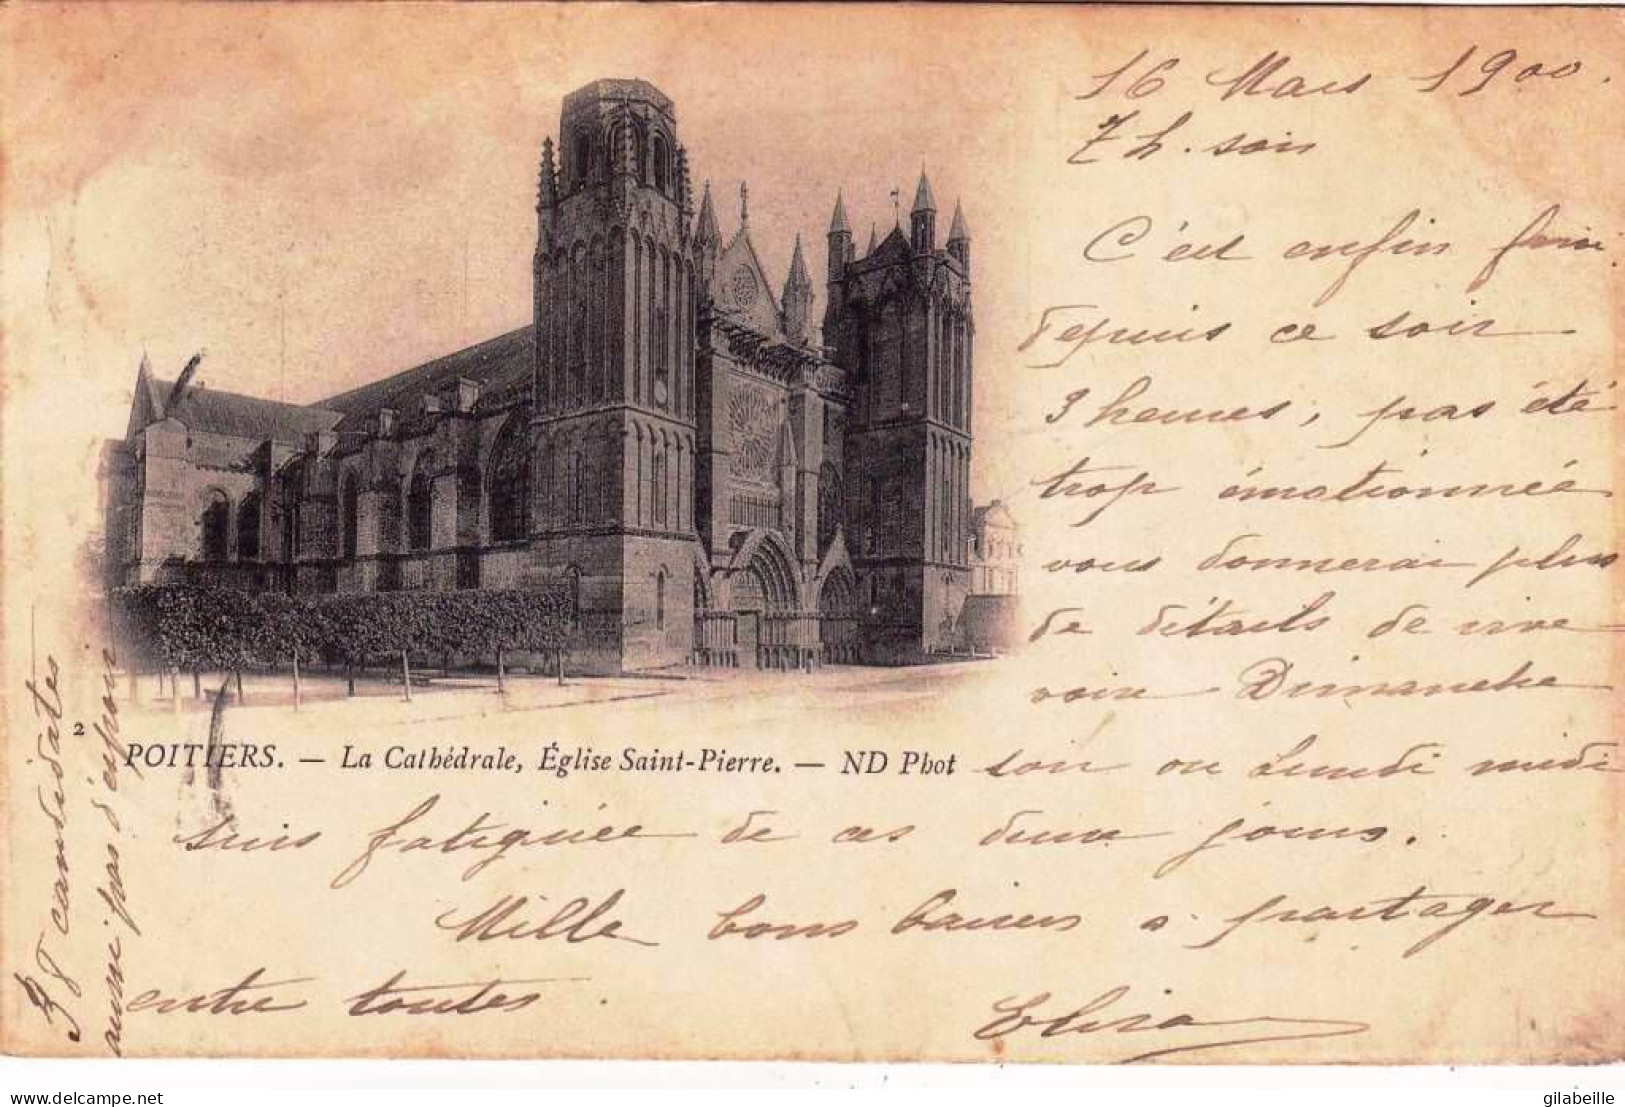 16 Mars 1900.
7 h. soir
C'est enfin fini
depuis ce soir
3 heures, pas été
trop émotionnée
vous donnerai plus
de détails de vive
voix Dimanche
2
POITIERS. — La Cathédrale, Église Saint-Pierre. — ND Phot
soir ou Lundi midi
suis fatiguée de ces deux jours.
Mille bons baisers à partager
entre toutes.
Elisa
38 candidates
aussi pas d'espoir
gilabeille